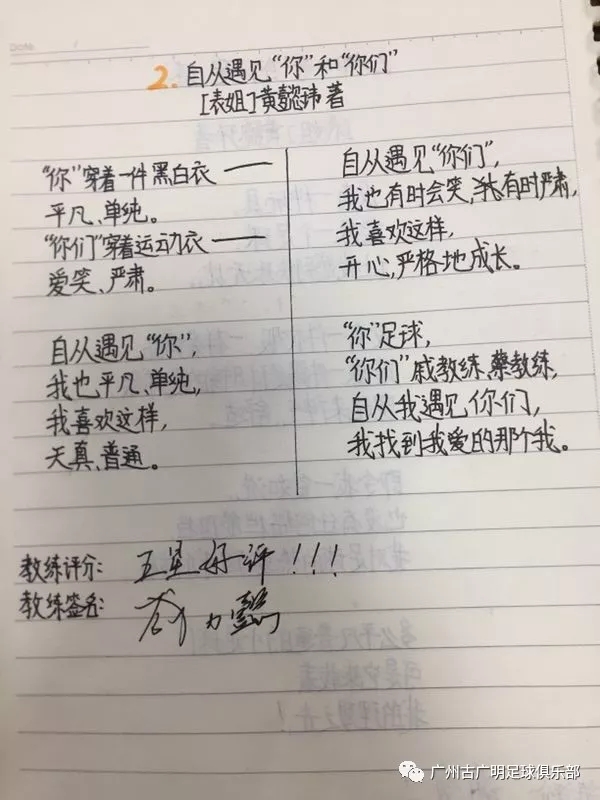 2. 自从遇见“你”和“你们”
[表姐]黄懿玮 著
“你”穿着一件黑白衣——
平凡、单纯。
“你们”穿着运动衣——
爱笑、严肃。
自从遇见“你”,
我也平凡、单纯,
我喜欢这样,
天真、普通。
自从遇见“你们”,
我也有时会笑,我有时严肃,
我喜欢这样,
开心,严格地成长。
“你”足球,
“你们”戚教练、蔡教练,
自从我遇见你们,
我找到我爱的那个我。
教练评分: 五星好评!!!
教练签名:
广州古广明足球俱乐部